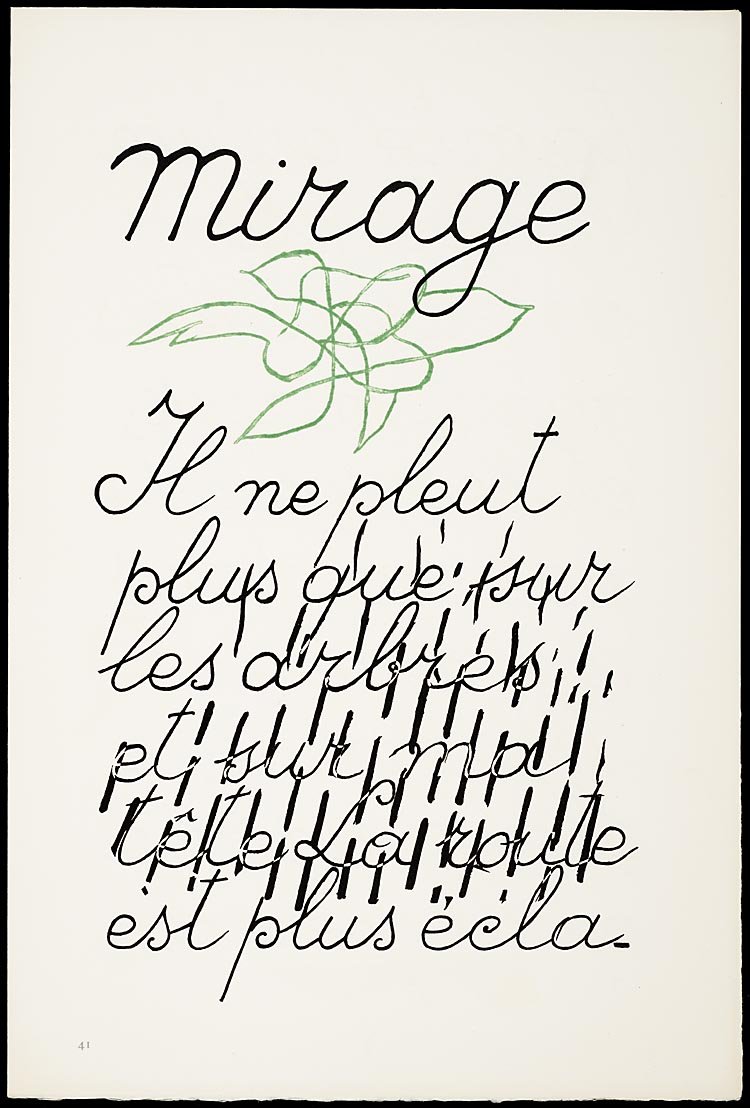 Mirage
Il ne pleut
plus que sur
les arbres
et sur ma
tête La route
est plus écla-
41